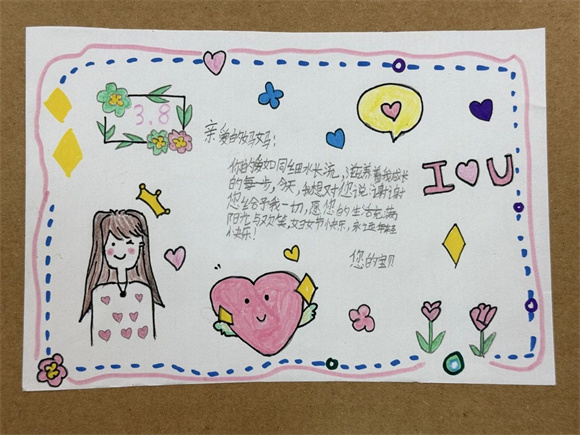 3.8
亲爱的妈妈:
你的爱如同细水长流,滋养着我成长
的每一步,今天,我想对您说谢谢
您给予我一切,愿您的生活充满
阳光与欢笑,妇女节快乐,永远年轻
快乐!
您的宝贝
I U